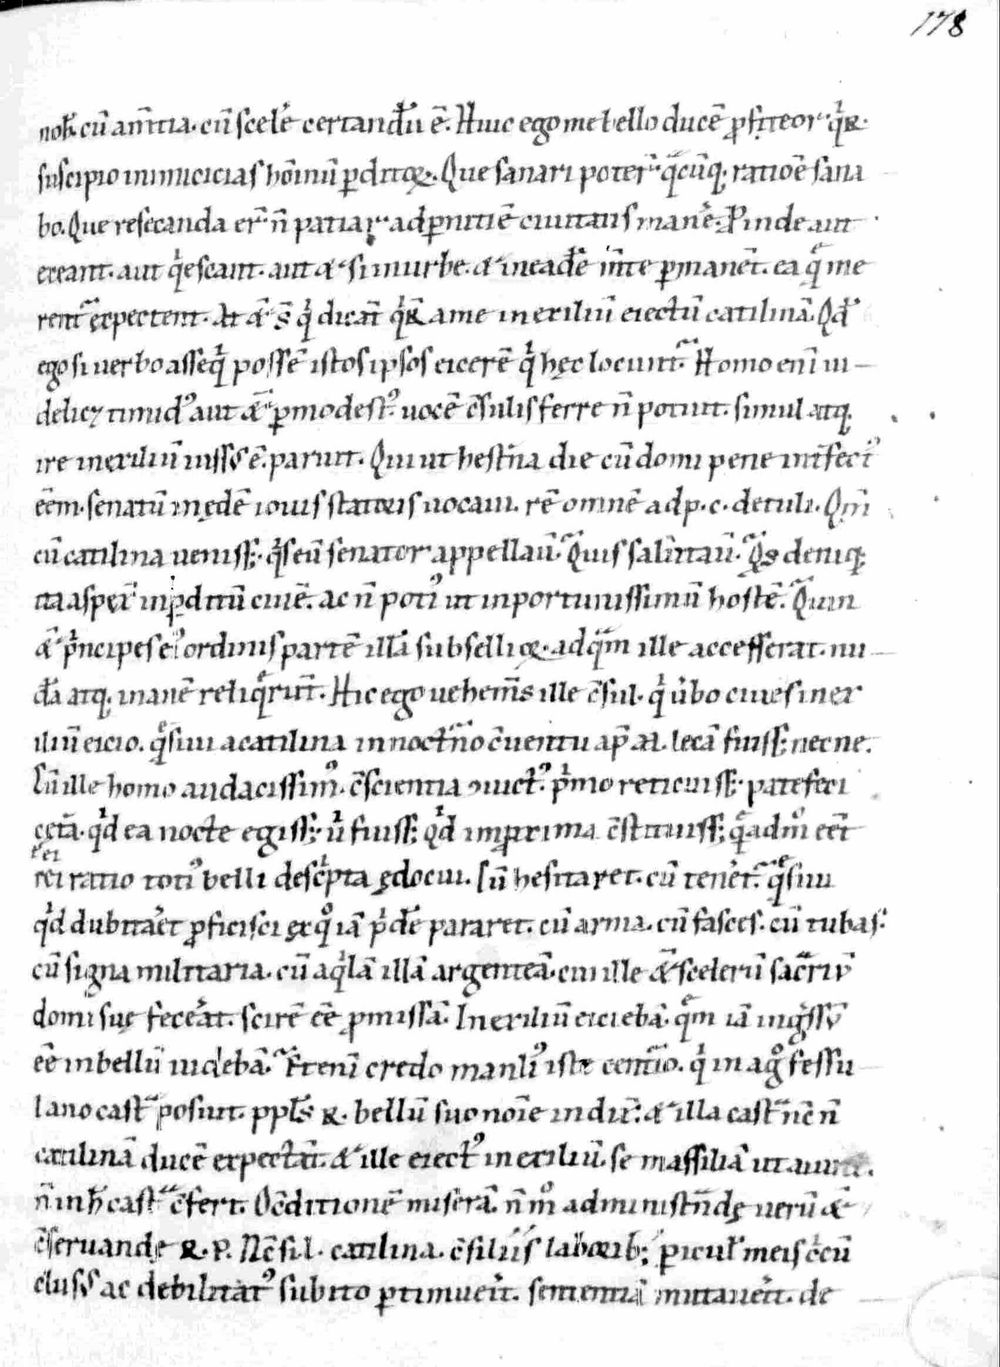 178
nob̄ cū am̄tia. cū scelē certandū ē. Huic ego me bello ducē ꝓfiteor q̇R.
suscipio inimicicias hoīnū ꝑditoꝝ. Que sanari poter̄ q̄cūq; ratiōe sana
bo. Que resecanda er̄ n̄ patiar ad ꝑnitiē ciuitatis manē. Proinde aut
exeant. aut q̇escant. aut & si in urbe. & in eadē m̄te ꝑmanēt. ea q̄ me
rent̄ expectent. At &̄ s̄ q̇ dicāt q̇R̄ a me in exiliū eiectū catilinā. Qd̄
ego si uerbo asseq̇ possē istos ipsos eicerē q̇ hęc locunt̄. Homo eni ui
delicꝫ timid᾿ aut &̄ ꝑmodest᾿ uocē c̄sulis ferre n̄ potuit. simul atq;
ire in exiliū iuss᾿ ē. paruit. Qui ut hest̄na die cū domi pene int̄fect᾿
eēm. senatū in ędē iouis statoris uocaui. rē omnē ad p. c. detuli. Qm̄
cū catilina uenisse; q̇s eū senator appellauī. Quis salutauī. Q̇s deniq;
ita aspex̄ in ꝑditū ciuē. ac n̄ poti᾿ ut inportunissimū hostē. Quin
&̄ p̄ncipes ei᾿ ordinis partē illā subsellioꝝ. ad q̄m ille accesserat. nu
dā atq; inanē reliq̄runt. Hic ego uehem̄s ille c̄sul. q̇ u̇bo ciues in ex
iliū eicio. q̄siui a catilina in noct̄no c̄uentu ap̄ M. lecā fuisse; necne.
Cū ille homo audacissim᾿. c̄scientia ꝯuict᾿. p̄mo reticuisse; patefeci
cęt̄a. q̇d ea nocte egisse; u̇ fuisse; q̇d in proxima c̄stituisse; q̄adm᾿ eēt
rei
rei ratio toti᾿ belli descp̄ta ędocui. Cū hesitaret. cū tenet̄. q̄siui
q̇d dubitaēt ꝓficisci ex q᾿ iā ṗdē pararet. cū arma. cū fasces. cū tubas.
cū signa militaria. cū aq̇lā illā argenteā. cui ille &̄ scelerū sac̄riū
domi suę fecēat. scirē eē ꝑmissā. In exiliū eiciebā. q̄m iā ing̊ssū
eē in bellū uidebā. Et eni credo manli᾿ iste centurio. q̇ in ag᾿ fessu
lano cast̄ posuit. ppl̄i R. bellū suo noīe indix̄. & illa cast̄ nc̄ n̄
catilinā ducē expectāt. & ille eiect᾿ in exiliū. se massiliā ut aiunt.
n̄ in h̄ cast̄ c̄fert. O c̄ditionē miserā. n̄ m᾿ administrandę uerū &̄
c̄seruandę R. P. Nc̄ si l. catilina. c̄siliis laborib; ꝑiculis meis c̄cū
clus᾿ ac debilitat᾿ subito ꝑtimueīt. sententiā mutauēit. de